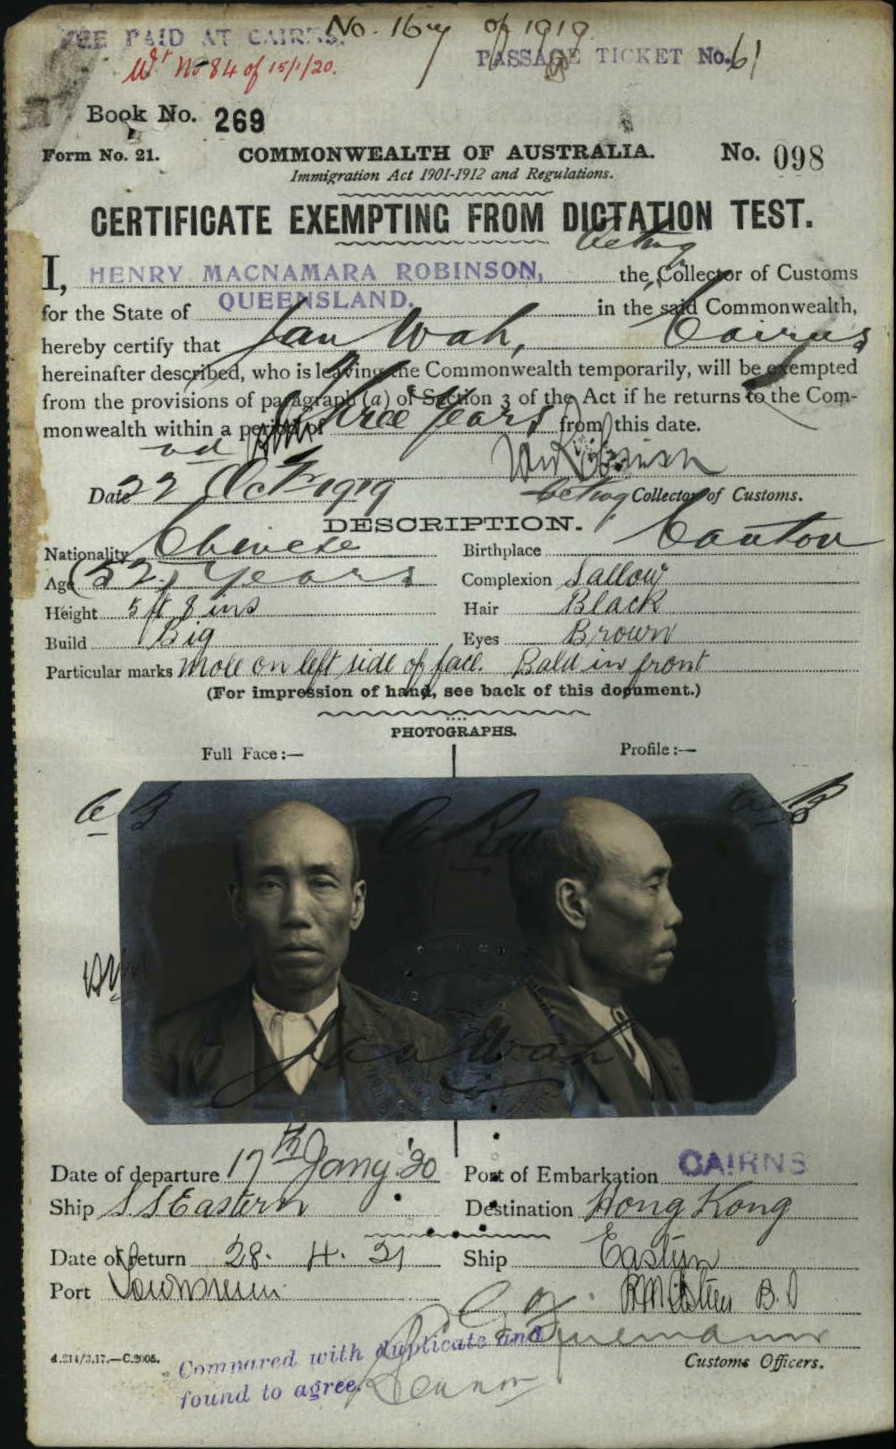 FEE PAID AT CAIRNS.
No. 167 of 1919
Wt No 84 of 15/1/20.
PASSAGE TICKET No. 61
Book No. 269
Form No. 21.
COMMONWEALTH OF AUSTRALIA.
No. 098
Immigration Act 1901-1912 and Regulations.
CERTIFICATE EXEMPTING FROM DICTATION TEST.
Acting
I, HENRY MACNAMARA ROBINSON, the Collector of Customs
for the State of QUEENSLAND. in the said Commonwealth,
hereby certify that Jan Wah, Cairns
hereinafter described, who is leaving the Commonwealth temporarily, will be exempted
from the provisions of paragraph (a) of Section 3 of the Act if he returns to the Com-
monwealth within a period of Three Years from this date.
Date 22nd Oct 1919
Acting Collector of Customs.
DESCRIPTION.
Nationality Chinese
Birthplace Canton
Age (52) years
Complexion Sallow
Height 5 ft 8 ins
Hair Black
Build Big
Eyes Brown
Particular marks Mole on left side of face. Bald in front
(For impression of hand, see back of this document.)
PHOTOGRAPHS.
Full Face:—
Profile:—
Jan Wah
Date of departure 17th Jany '20
Port of Embarkation CAIRNS
Ship S.S Eastern
Destination Hong Kong
Date of return 28. 4. 21
Ship Eastern
Port
Customs Officers.
Compared with duplicate and
found to agree.